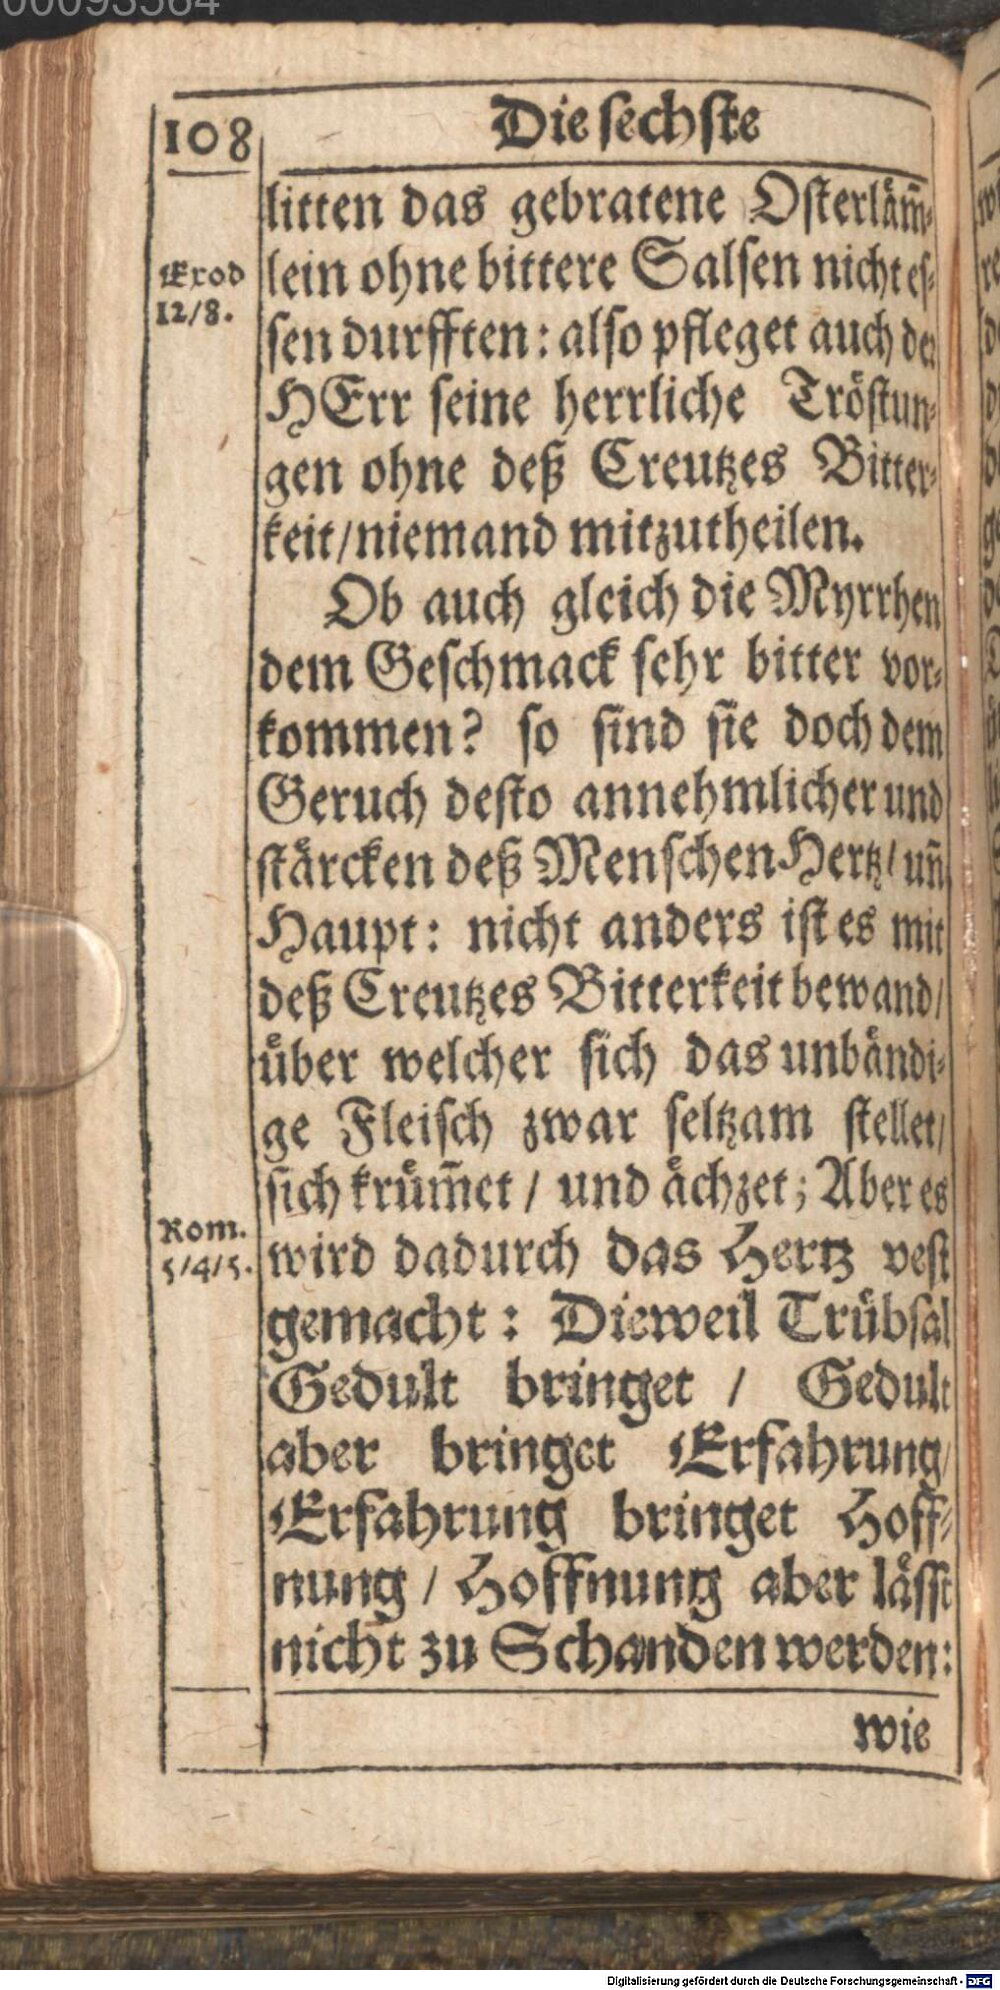 00093564
108
Die sechste
litten das gebratene Osterläm̃-
Exod
12/8.
lein ohne bittere Salsen nicht es-
sen durfften: also pfleget auch der
HErr seine herrliche Tröstun-
gen ohne deß Creutzes Bitter-
keit/niemand mitzutheilen.
Ob auch gleich die Myrrhen
dem Geschmack sehr bitter vor-
kommen? so sind sie doch dem
Geruch desto annehmlicher und
stärcken deß Menschen Hertz/ uñ
Haupt: nicht anders ist es mit
deß Creutzes Bitterkeit bewand/
über welcher sich das unbändi-
ge Fleisch zwar seltzam stellet/
sich krüm̃et / und ächzet; Aber es
Rom.
5/4/5.
wird dadurch das Hertz vest
gemacht: Dieweil Trübsal
Gedult bringet / Gedult
aber bringet Erfahrung/
Erfahrung bringet Hoff-
nung / Hoffnung aber lässt
nicht zu Schanden werden:
wie
Digitalisierung gefördert durch die Deutsche Forschungsgemeinschaft - DFG